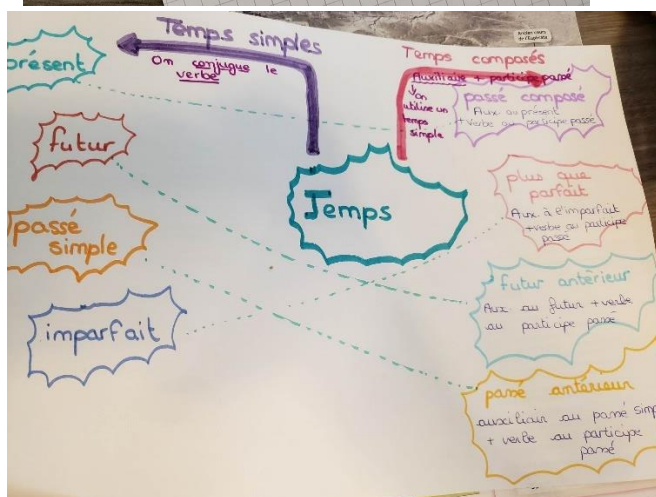 Temps simples
On conjugue le
verbe
présent
futur
passé
simple
imparfait
Temps
Temps composés
Auxiliaire + participe passé
On
utilise un
temps
simple
passé composé
Aux au présent
+ verbe au participe passé
plus que
parfait
Aux à l'imparfait
+ verbe au participe
passé
futur antérieur
Aux au futur + verbe
au participe passé
passé antérieur
auxiliair au passé simp
+ verbe au participe
passé